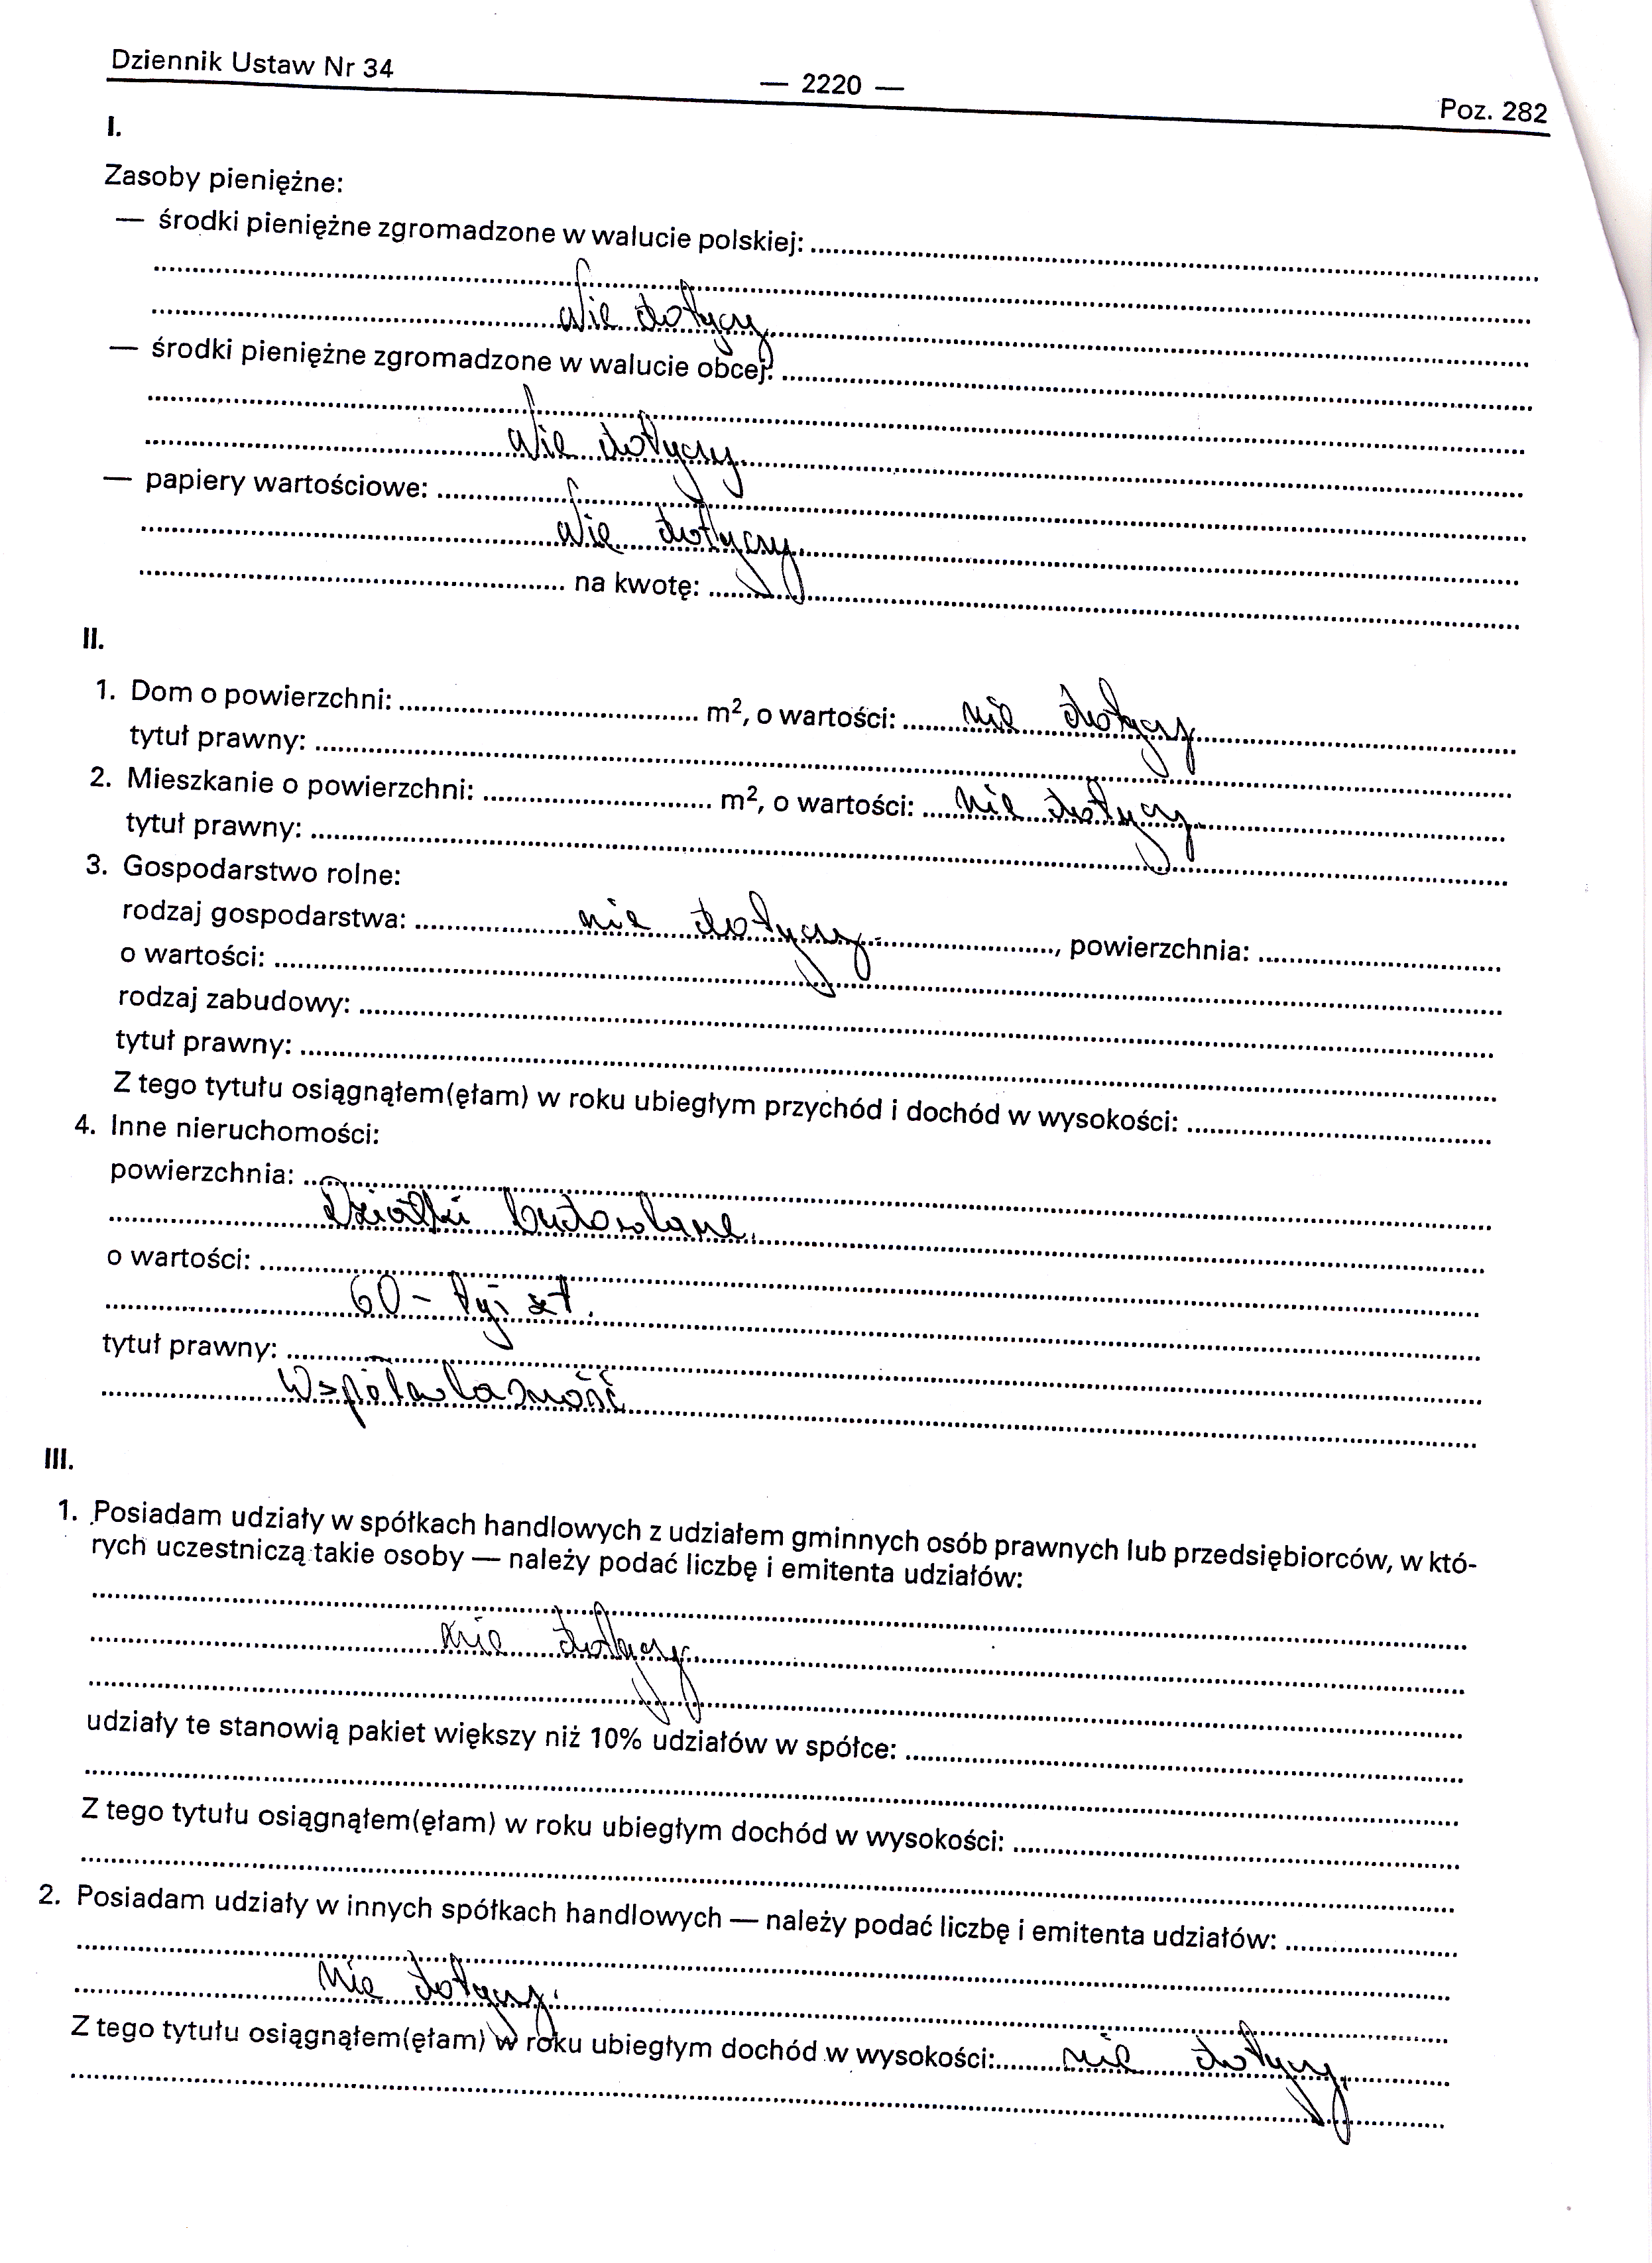 Dziennik Ustaw Nr 34
— 2220 —
Poz. 282
I.
Zasoby pieniężne:
— środki pieniężne zgromadzone w walucie polskiej:
Nie dotyczy
— środki pieniężne zgromadzone w walucie obcej:
Nie dotyczy
— papiery wartościowe:
Nie dotyczy
na kwotę:
II.
1. Dom o powierzchni: m², o wartości: nie dotyczy
tytuł prawny:
2. Mieszkanie o powierzchni: m², o wartości: nie dotyczy
tytuł prawny:
3. Gospodarstwo rolne:
rodzaj gospodarstwa: nie dotyczy, powierzchnia:
o wartości:
rodzaj zabudowy:
tytuł prawny:
Z tego tytułu osiągnąłem(ęłam) w roku ubiegłym przychód i dochód w wysokości:
4. Inne nieruchomości:
powierzchnia:
Działki budowlane.
o wartości:
60 - tyś zł.
tytuł prawny:
Współwłasność
III.
1. Posiadam udziały w spółkach handlowych z udziałem gminnych osób prawnych lub przedsiębiorców, w któ-
rych uczestniczą takie osoby — należy podać liczbę i emitenta udziałów:
nie dotyczy
udziały te stanowią pakiet większy niż 10% udziałów w spółce:
Z tego tytułu osiągnąłem(ęłam) w roku ubiegłym dochód w wysokości:
2. Posiadam udziały w innych spółkach handlowych — należy podać liczbę i emitenta udziałów:
nie dotyczy.
Z tego tytułu osiągnąłem(ęłam) w roku ubiegłym dochód w wysokości: nie dotyczy.